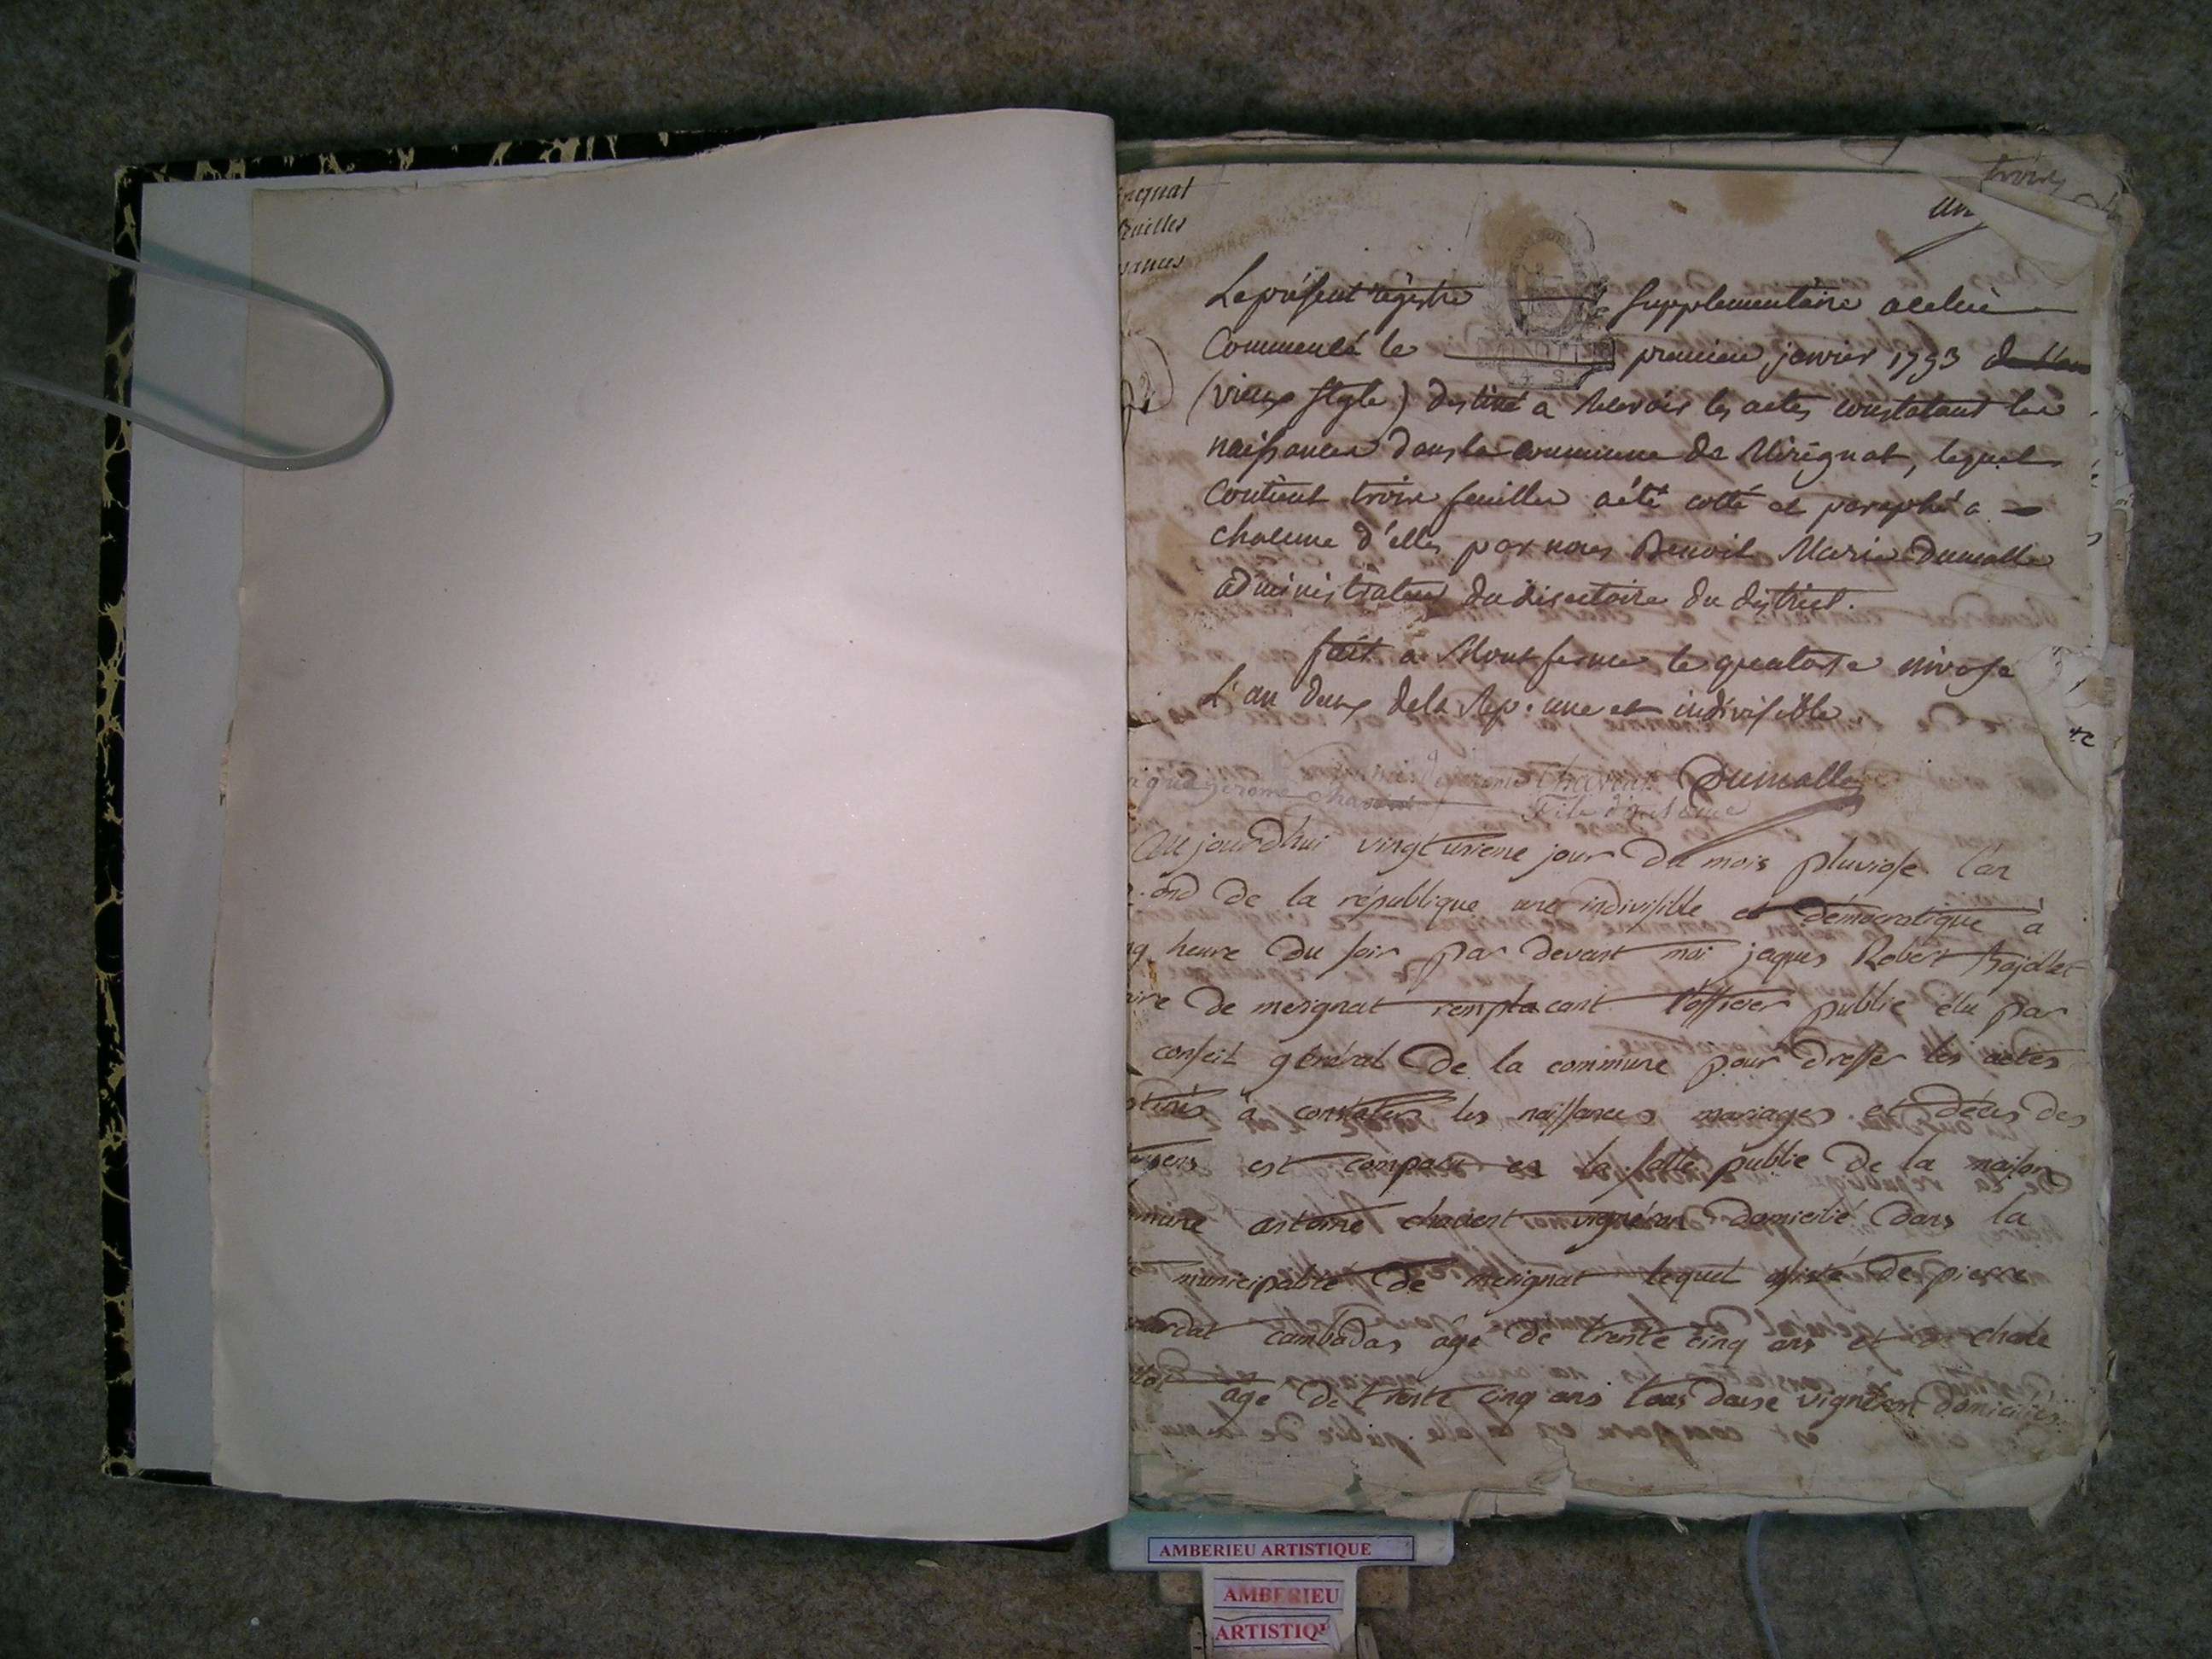 trois
un
Le présent registre supplementaire a celui
Commencé le premier janvier 1793 de l'an
(vieux style) destiné a recevoir les actes constatant les
naissances dans la commune de Mérignat, lequel
contient trois feuilles a été cotté et paraphé a
chacune d'elles par nous Benoit Marie Dumolle
administrateur du directoire du district.
fait a Mont ferme le quatorse nivose
L'an deux de la Rep. une et indivisible
Dumolle
jerome
Fils d'antoine
Aujourdhui vingt unieme jour du mois pluviose l'an
ond de la république une indivisible et démocratique à
heure du soir par devant moi jaques Robert trajollet
de merignat remplacant l'officier public élu par
conseil général de la commune pour dresser les actes
stinés à constater les naissances mariages et décès des
est comparu en la salle public de la maison
antoine chavent vignéron domicilié dans la
municipalité de merignat lequel assisté de pierre
cambadas âgé de trente cinq ans et de
âgé de trente cinq ans tous deuse vigneron domiciliés
AMBERIEU ARTISTIQUE
AMBERIEU
ARTISTIQ